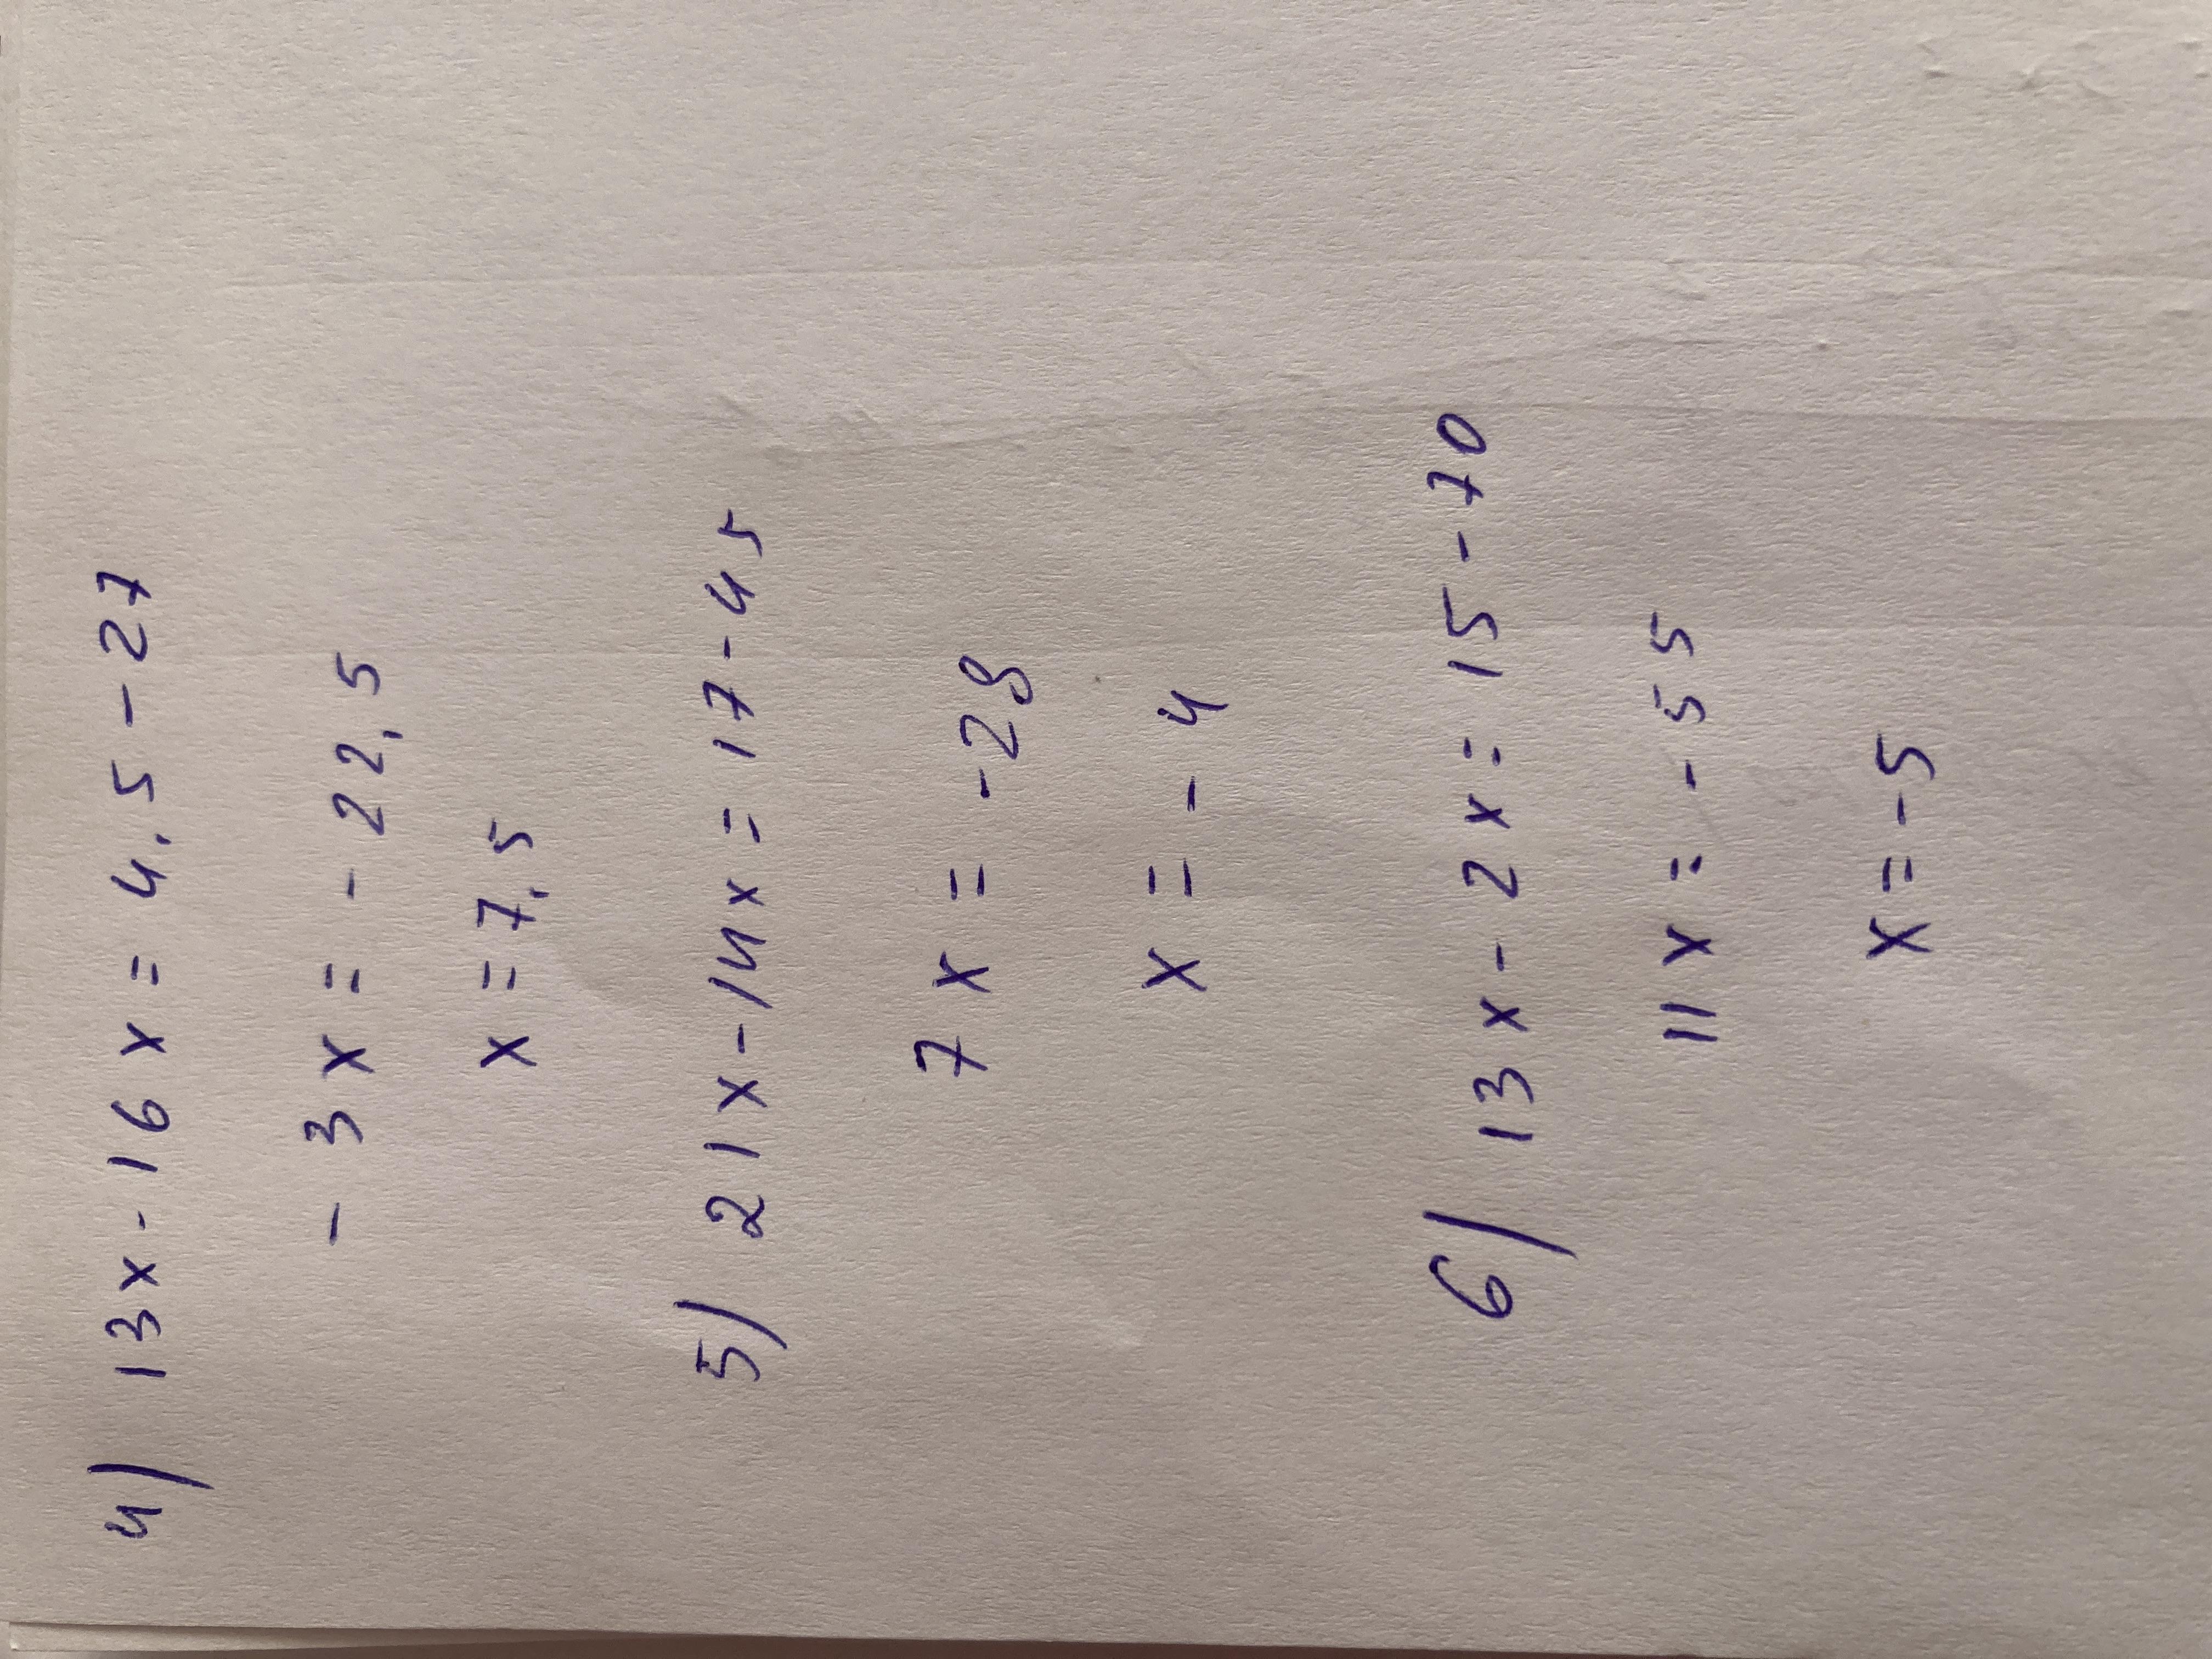 4) 13x-16x=4.5-27
-3x=-22.5
x=7.5
5) 21x-14x=17-45
7x=-28
x=-4
6) 13x-2x=15-70
11x=-55
x=-5